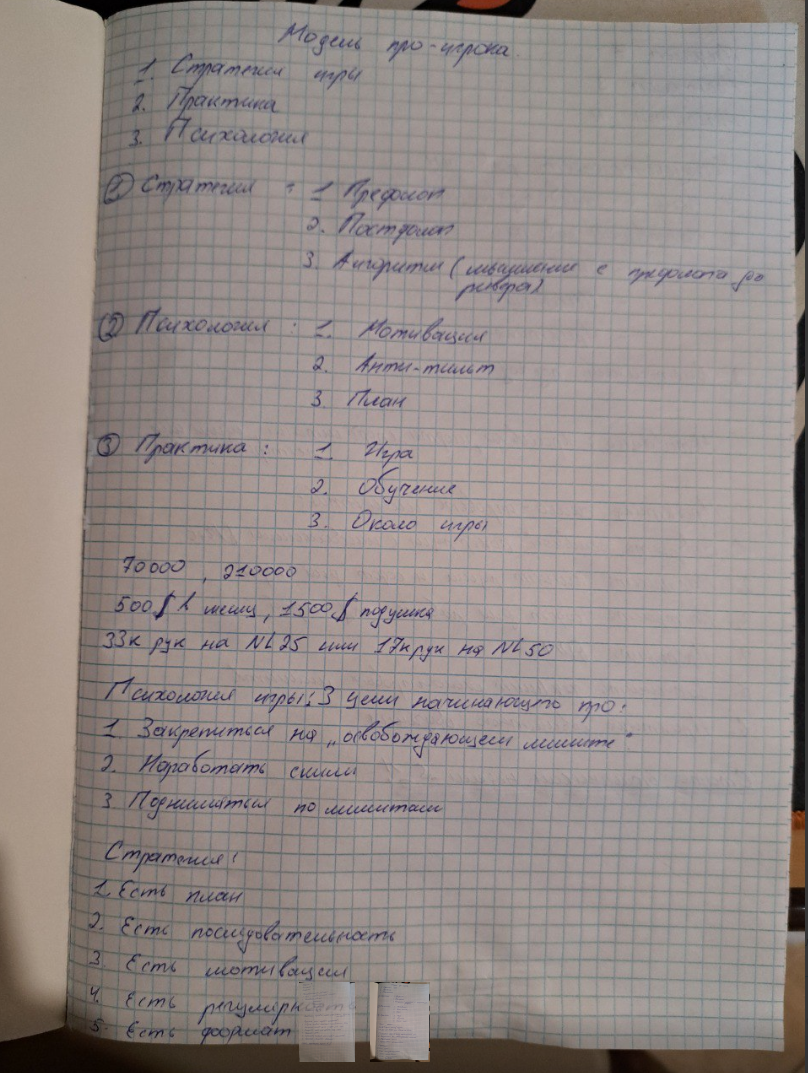 Модель про-игрока.
1. Стратегия игры
2. Практика
3. Психология
① Стратегия : 1 Префлоп
2. Постфлоп
3. Алгоритм (мышление с префлопа до
ривера)
② Психология : 1. Мотивация
2. Анти-тильт
3. План
③ Практика : 1. Игра
2. Обучение
3. Около игры
70000 , 210000
500$ в месяц, 1500$ подушка
33к рук на NL25 или 17к рук на NL50
Психология игры: 3 цели начинающего про:
1 Закрепиться на „освобождающем лимите"
2. Наработать скилл
3. Подниматься по лимитам
Стратегия:
1. Есть план
2. Есть последовательность
3. Есть мотивация
4. Есть регулярность
5. Есть формат